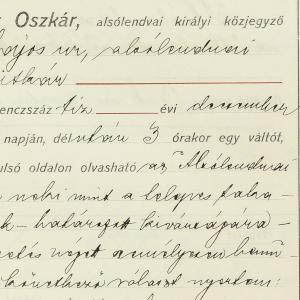 Oszkár, alsólendvai királyi közjegyző
Lajos ur, alsólendvai
titkár
enczszáz tiz évi december
napján, délután 3 órakor egy váltót,
ulsó oldalon olvasható az "Alsólendvai
neki mint a teljes
k - határozott kivánságára -
személyesen
következő választ nyertem: